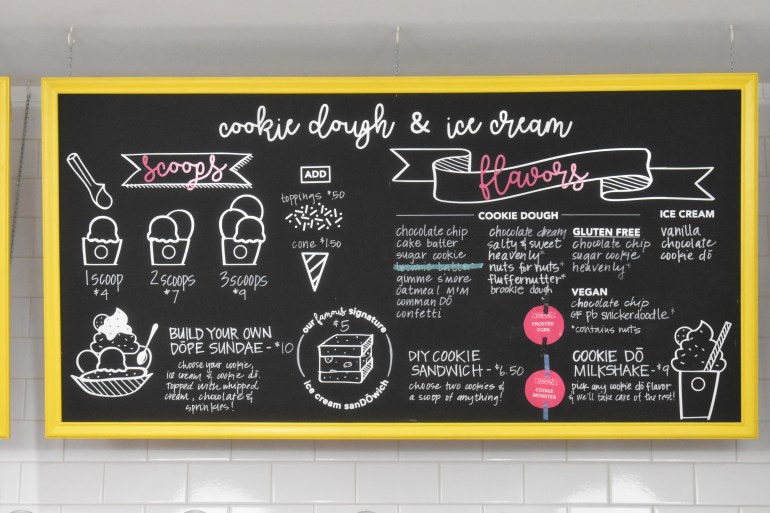 cookie dough & ice cream
scoops
1 scoop
$4
2 scoops
$7
3 scoops
$9
ADD
toppings $.50
cone $1.50
flavors
COOKIE DOUGH
chocolate chip
cake batter
sugar cookie
gimme s'more
oatmeal m'm
comman DŌ
confetti
chocolate dream
salty & sweet
heavenly*
nuts for nuts*
fluffernutter*
brookie dough
FROSTED
COOKIE
MONSTER
GLUTEN FREE
chocolate chip
sugar cookie
heavenly*
VEGAN
chocolate chip
GF pb snickerdoodle+
*contains nuts
ICE CREAM
vanilla
chocolate
cookie dō
BUILD YOUR OWN
DŌPE SUNDAE - $10
choose your cookie,
ice cream & cookie dō.
Topped with whipped
cream, chocolate &
sprinkles!
our famous signature
$5
ice cream sanDŌwich
DIY COOKIE
SANDWICH - $6.50
choose two cookies &
a scoop of anything!
COOKIE DŌ
MILKSHAKE - $9
pick any cookie dō flavor
& we'll take care of the rest!